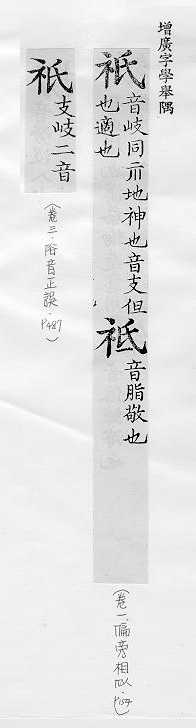 增廣字學舉隅
祇音岐同示地神也音支但
也適也
祗音脂敬也
(卷一.偏旁相似.P.154)
祇支岐二音
(卷三.俗音正誤.P487)